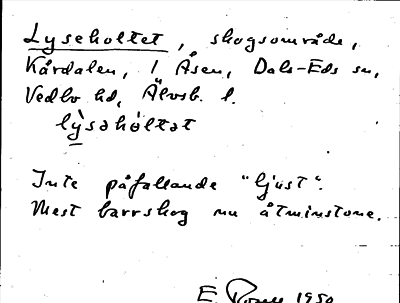 Lyseholtet, skogsområde,
Kårdalen, 1 Åsen, Dals-Eds sn,
Vedbo hd, Älvsb. l.
lỳsəhɷltət
Inte påfallande "ljust".
Mest barrskog nu åtminstone.
E 1950